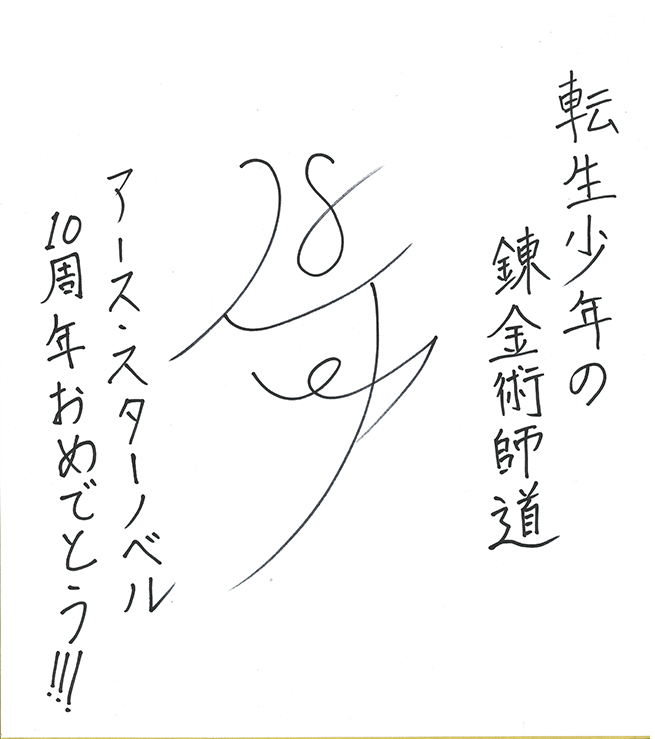 転生少年の
錬金術師道
アース・スターノベル
10周年おめでとう!!!